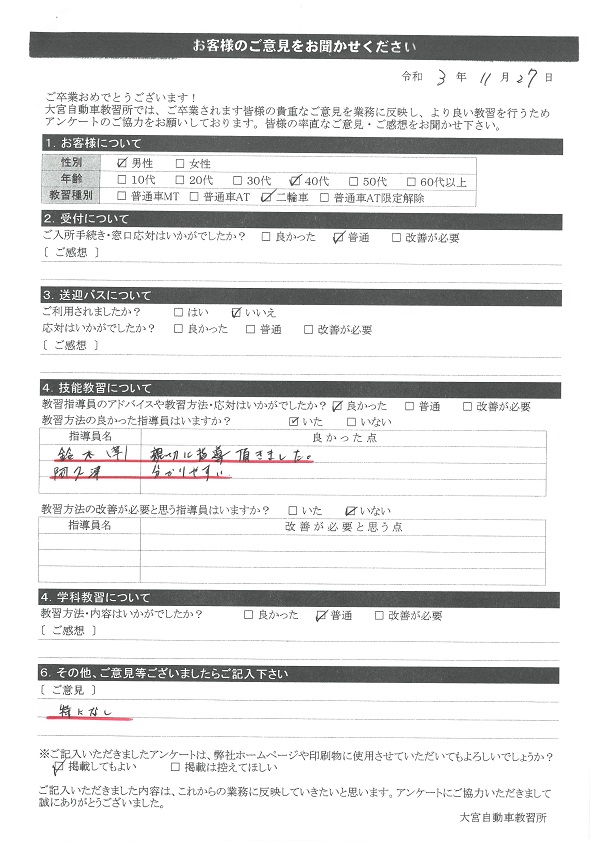 お客様のご意見をお聞かせください
令和 3 年 11 月 27 日
ご卒業おめでとうございます！
大宮自動車教習所では、ご卒業されます皆様の貴重なご意見を業務に反映し、より良い教習を行うため
アンケートのご協力をお願いしております。皆様の率直なご意見・ご感想をお聞かせ下さい。
1. お客様について
性別 ☑ 男性 □ 女性
年齢 □ 10代 □ 20代 □ 30代 ☑ 40代 □ 50代 □ 60代以上
教習種別 □ 普通車MT □ 普通車AT ☑ 二輪車 □ 普通車AT限定解除
2. 受付について
ご入所手続き・窓口応対はいかがでしたか？ □ 良かった ☑ 普通 □ 改善が必要
［ ご感想 ］
3. 送迎バスについて
ご利用されましたか？ □ はい ☑ いいえ
応対はいかがでしたか？ □ 良かった □ 普通 □ 改善が必要
［ ご感想 ］
4. 技能教習について
教習指導員のアドバイスや教習方法・応対はいかがでしたか？ ☑ 良かった □ 普通 □ 改善が必要
教習方法の良かった指導員はいますか？ ☑ いた □ いない
指導員名 良かった点
鈴木 親切に指導頂きました。
阿久津 分かりやすい
教習方法の改善が必要と思う指導員はいますか？ □ いた ☑ いない
指導員名 改善が必要と思う点
4. 学科教習について
教習方法・内容はいかがでしたか？ □ 良かった ☑ 普通 □ 改善が必要
［ ご感想 ］
6. その他、ご意見等ございましたらご記入下さい
［ ご意見 ］
特になし
※ご記入いただきましたアンケートは、弊社ホームページや印刷物に使用させていただいてもよろしいでしょうか？
☑ 掲載してもよい □ 掲載は控えてほしい
ご記入いただきました内容は、これからの業務に反映していきたいと思います。アンケートにご協力いただきまして
誠にありがとうございました。
大宮自動車教習所